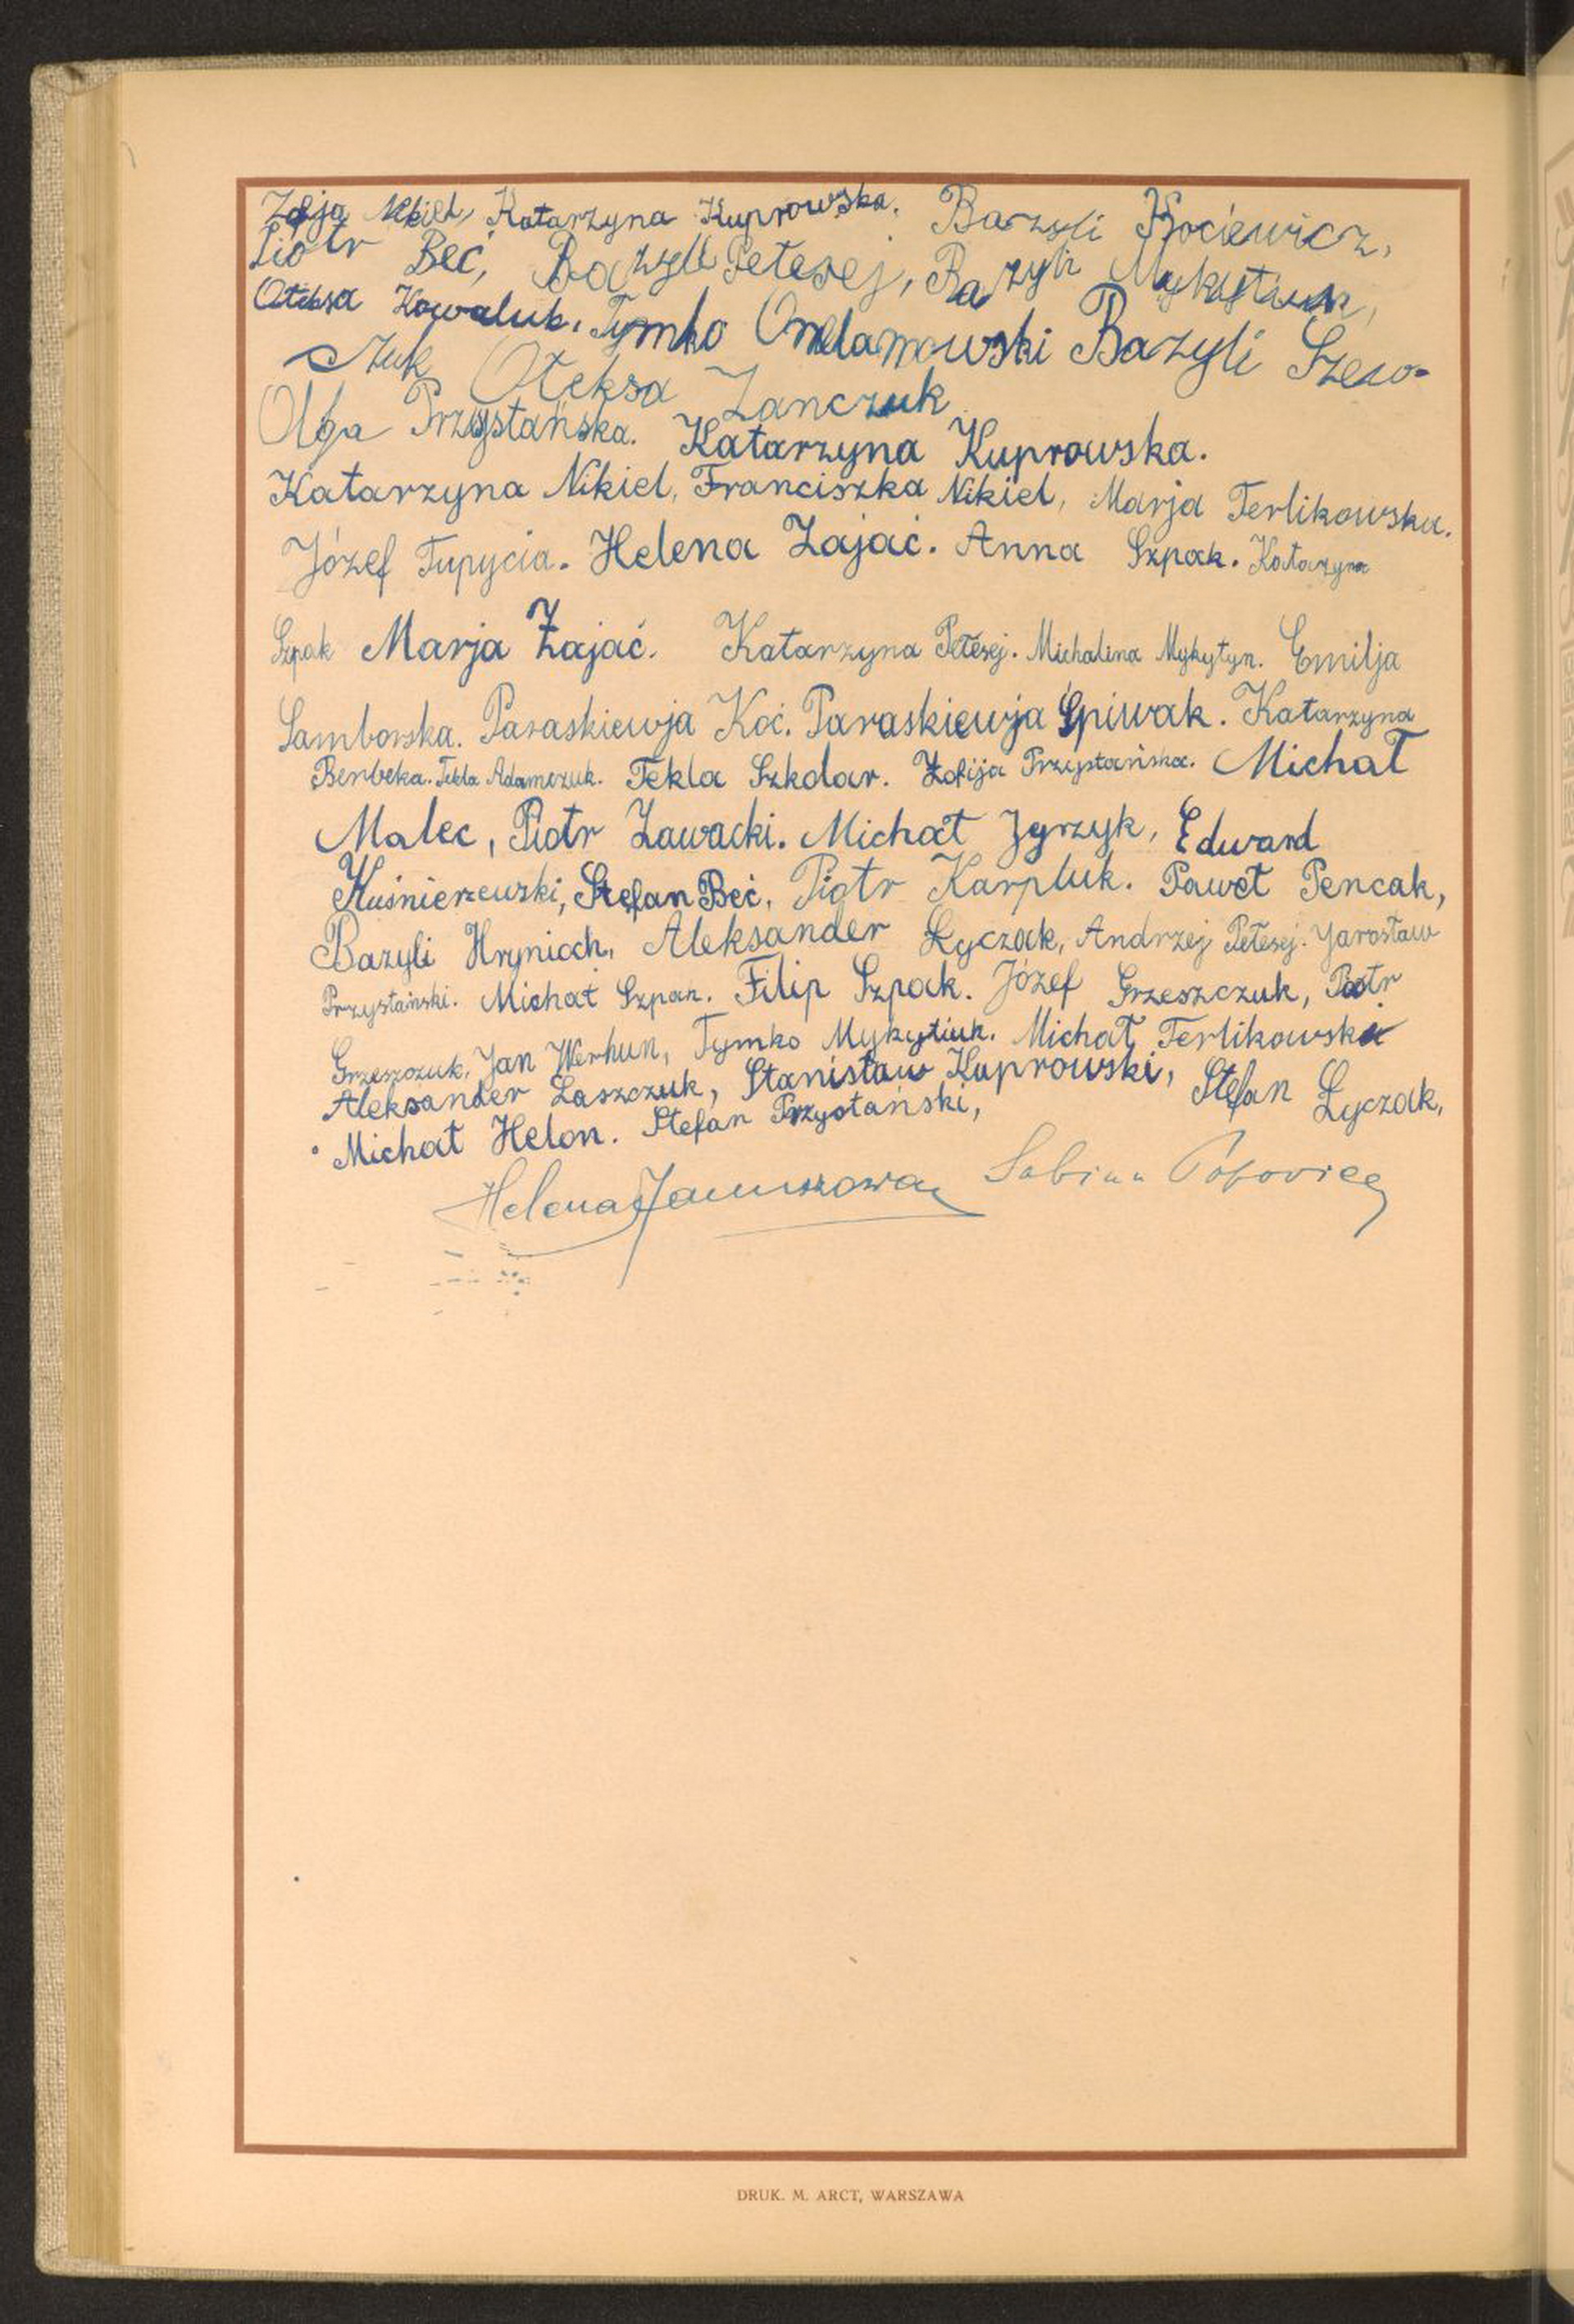 Zofja Nikiel, Katarzyna Kuprowska. Bazyli Kociewicz,
Piotr Beć, Bazyli Petesej, Bazyli Mykytiuk,
Ołeksa Kowaluk. Tymko Omelanowski Bazyli Szew-
czuk Ołeksa Janczuk
Olga Przystańska. Katarzyna Kuprowska.
Katarzyna Nikiel, Franciszka Nikiel, Marja Terlikowska.
Józef Tupycia. Helena Zając. Anna Szpak. Katarzyna
Szpak Marja Zając. Katarzyna Petesej. Michalina Mykytyn. Emilja
Samborska. Paraskiewja Koć. Paraskiewja Spiwak. Katarzyna
Berbeka. Tekla Adamczuk. Tekla Szkolar. Zofija Przystańska. Michał
Malec, Piotr Zawacki. Michał Jgrzyk, Edward
Kuśnierzewski, Stefan Beć. Piotr Karpluk. Paweł Pencak,
Bazyli Hrynioch, Aleksander Łyczak, Andrzej Petesej. Jarosław
Przystański. Michał Szpak. Filip Szpak. Józef Grzeszczuk, Piotr
Grzeszczuk, Jan Werhun, Tymko Mykytiuk. Michał Terlikowski
Aleksander Łaszczuk, Stanisław Kuprowski, Stefan Łyczak,
Michał Helon. Stefan Przystański,
Helena Januszowa Sabina
DRUK. M. ARCT, WARSZAWA